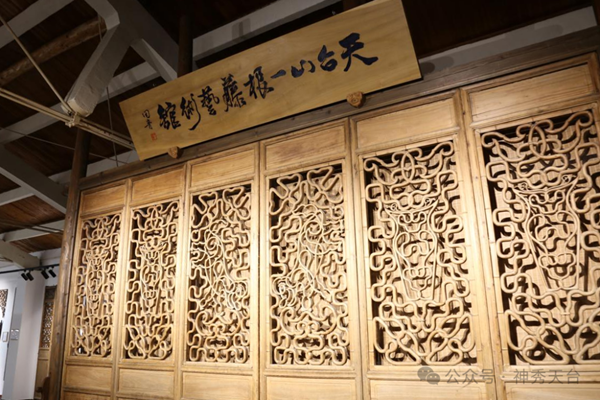 天台山一根藤藝術館
公众号·神秀天台